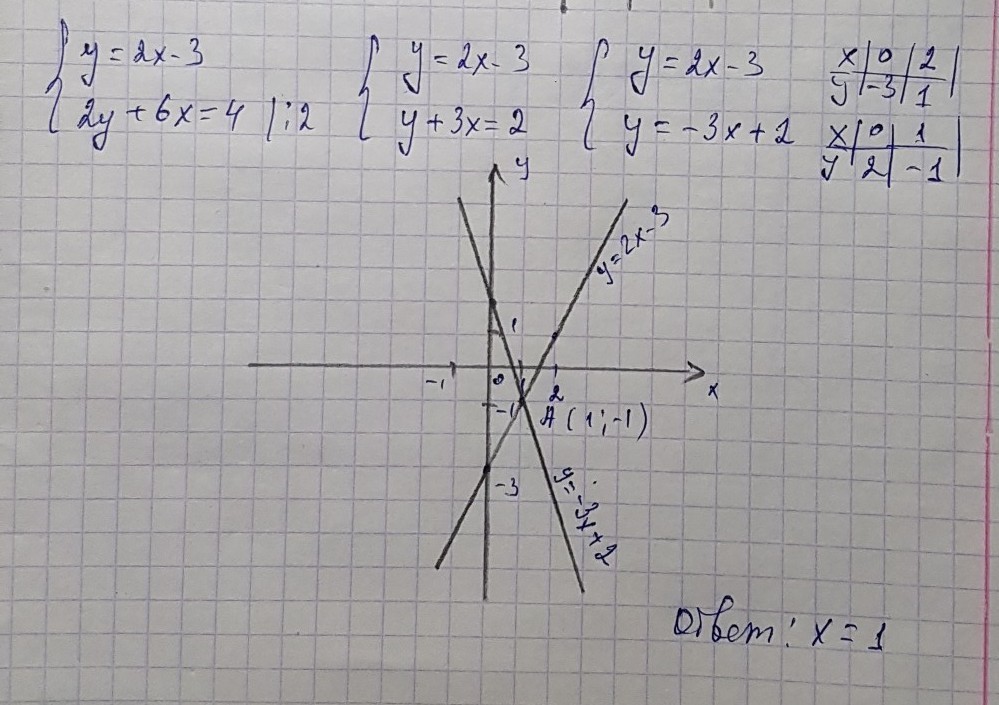 { y = 2x - 3
2y + 6x = 4 | : 2
{ y = 2x - 3
y + 3x = 2
{ y = 2x - 3
y = -3x + 2
x | 0 | 2 |
y | -3 | 1 |
x | 0 | 1 |
y | 2 | -1 |
y
y = 2x - 3
1
-1 0 2 x
-1 A (1; -1)
-3
y = -3x + 2
Ответ: x = 1